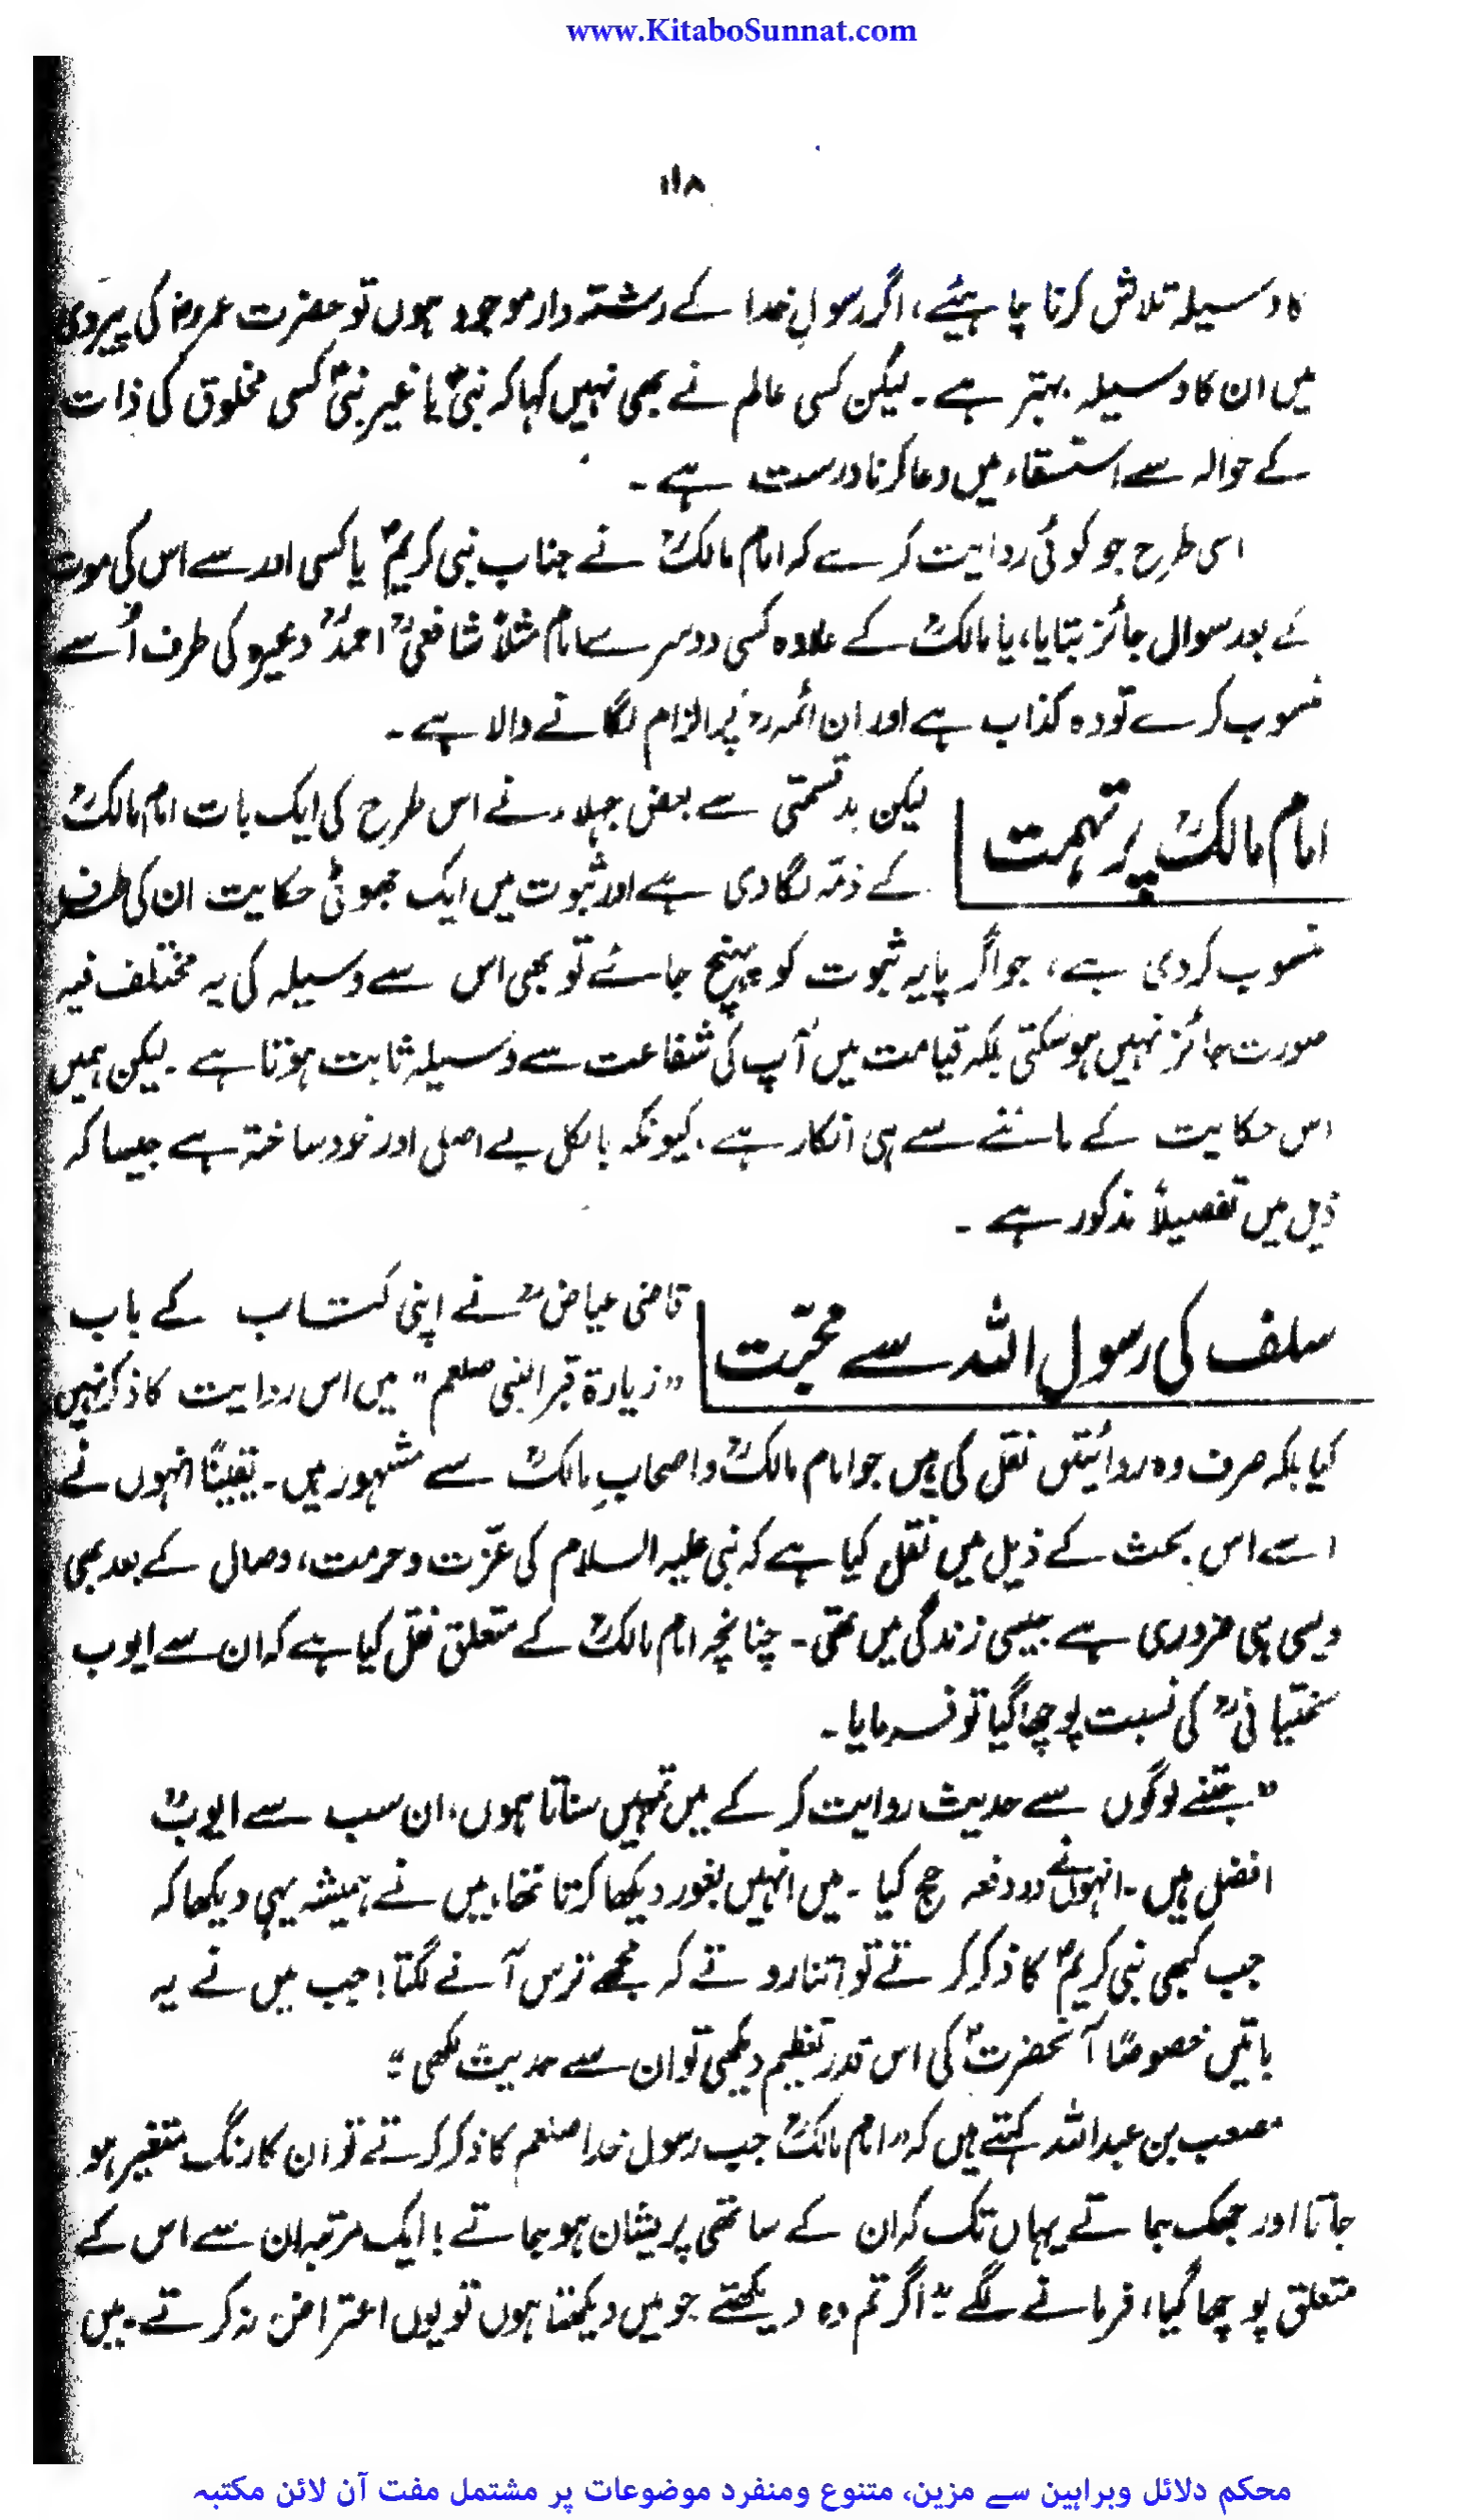 www.KitaboSunnat.com
۱۱۸
کا وسیلہ تلاش کرنا چاہیئے، اگر رسولِ خدا کے رشتہ دار موجود ہوں تو حضرت عمرؓ کی پیروی
میں ان کا وسیلہ بہتر ہے۔ لیکن کسی عالم نے بھی نہیں کہا کہ نبیؐ یا غیر نبیؐ کسی مخلوق کی ذات
کے حوالہ سے استسقاء میں دعا کرنا درست ہے۔
اسی طرح جو کوئی روایت کرے کہ امام مالکؒ نے جناب نبی کریمؐ یا کسی اور سے اس کی موت
کے بعد سوال جائز بتایا، یا مالکؒ کے علاوہ کسی دوسرے امام مثلاً شافعیؒ احمدؒ وغیرہ کی طرف اُسے
منسوب کرے تو وہ کذاب ہے اور ان ائمہؒ پر الزام لگانے والا ہے۔
امام مالکؒ پر تہمت
لیکن بدقسمتی سے بعض جہلاء نے اس طرح کی ایک بات امام مالکؒ
کے ذمّہ لگا دی ہے اور ثبوت میں ایک جھوٹی حکایت ان کی طرف
منسوب کر دی ہے، جو اگر پایہ ثبوت کو پہنچ جائے تو بھی اس سے وسیلہ کی یہ مختلف فیہ
صورت جائز نہیں ہو سکتی بلکہ قیامت میں آپ کی شفاعت سے وسیلہ ثابت ہوتا ہے۔ لیکن ہمیں
اس حکایت کے ماننے سے ہی انکار ہے۔ کیونکہ بالکل بے اصلی اور خود ساختہ ہے جیسا کہ
ذیل میں تفصیلاً مذکور ہے۔
سلف کی رسول اللہ سے محبّت
قاضی عیاضؒ نے اپنی کتاب کے باب
"زیارۃ قبر النبی صلعم" میں اس روایت کا ذکر نہیں
کیا بلکہ صرف وہ روائیتیں نقل کی ہیں جو امام مالکؒ و اصحابِ مالکؒ سے مشہور ہیں۔ یقیناً انہوں نے
اسے اس بحث کے ذیل میں نقل کیا ہے کہ نبی علیہ السلام کی عزّت و حرمت، وصال کے بعد بھی
ویسی ہی ضروری ہے جیسی زندگی میں تھی۔ چنانچہ امام مالکؒ کے متعلق نقل کیا ہے کہ ان سے ایوب
سختیانیؒ کی نسبت پوچھا گیا تو فرمایا۔
"جتنے لوگوں سے حدیث روایت کر کے میں تمہیں سناتا ہوں، ان سب سے ایوبؒ
افضل ہیں۔ انہوں نے دو دفعہ حج کیا۔ میں انہیں بغور دیکھا کرتا تھا، میں نے ہمیشہ یہی دیکھا کہ
جب کبھی نبی کریمؐ کا ذکر کرتے تو اتنا روتے کہ مجھے ترس آنے لگتا! جب میں نے یہ
باتیں خصوصًا آنحضرتؐ کی اس قدر تعظیم دیکھی تو ان سے حدیث لکھی"
مصعب بن عبداللہ کہتے ہیں کہ "امام مالکؒ جب رسول خدا صلعم کا ذکر کرتے تو ان کا رنگ متغیر ہو
جاتا اور جھک جاتے یہاں تک کہ ان کے ساتھی پریشان ہو جاتے! ایک مرتبہ ان سے اس کے
متعلق پوچھا گیا، فرمانے لگے "اگر تم وہ دیکھتے جو میں دیکھتا ہوں تو یوں اعتراض نہ کرتے۔ میں
محکم دلائل وبراہین سے مزین، متنوع ومنفرد موضوعات پر مشتمل مفت آن لائن مکتبہ